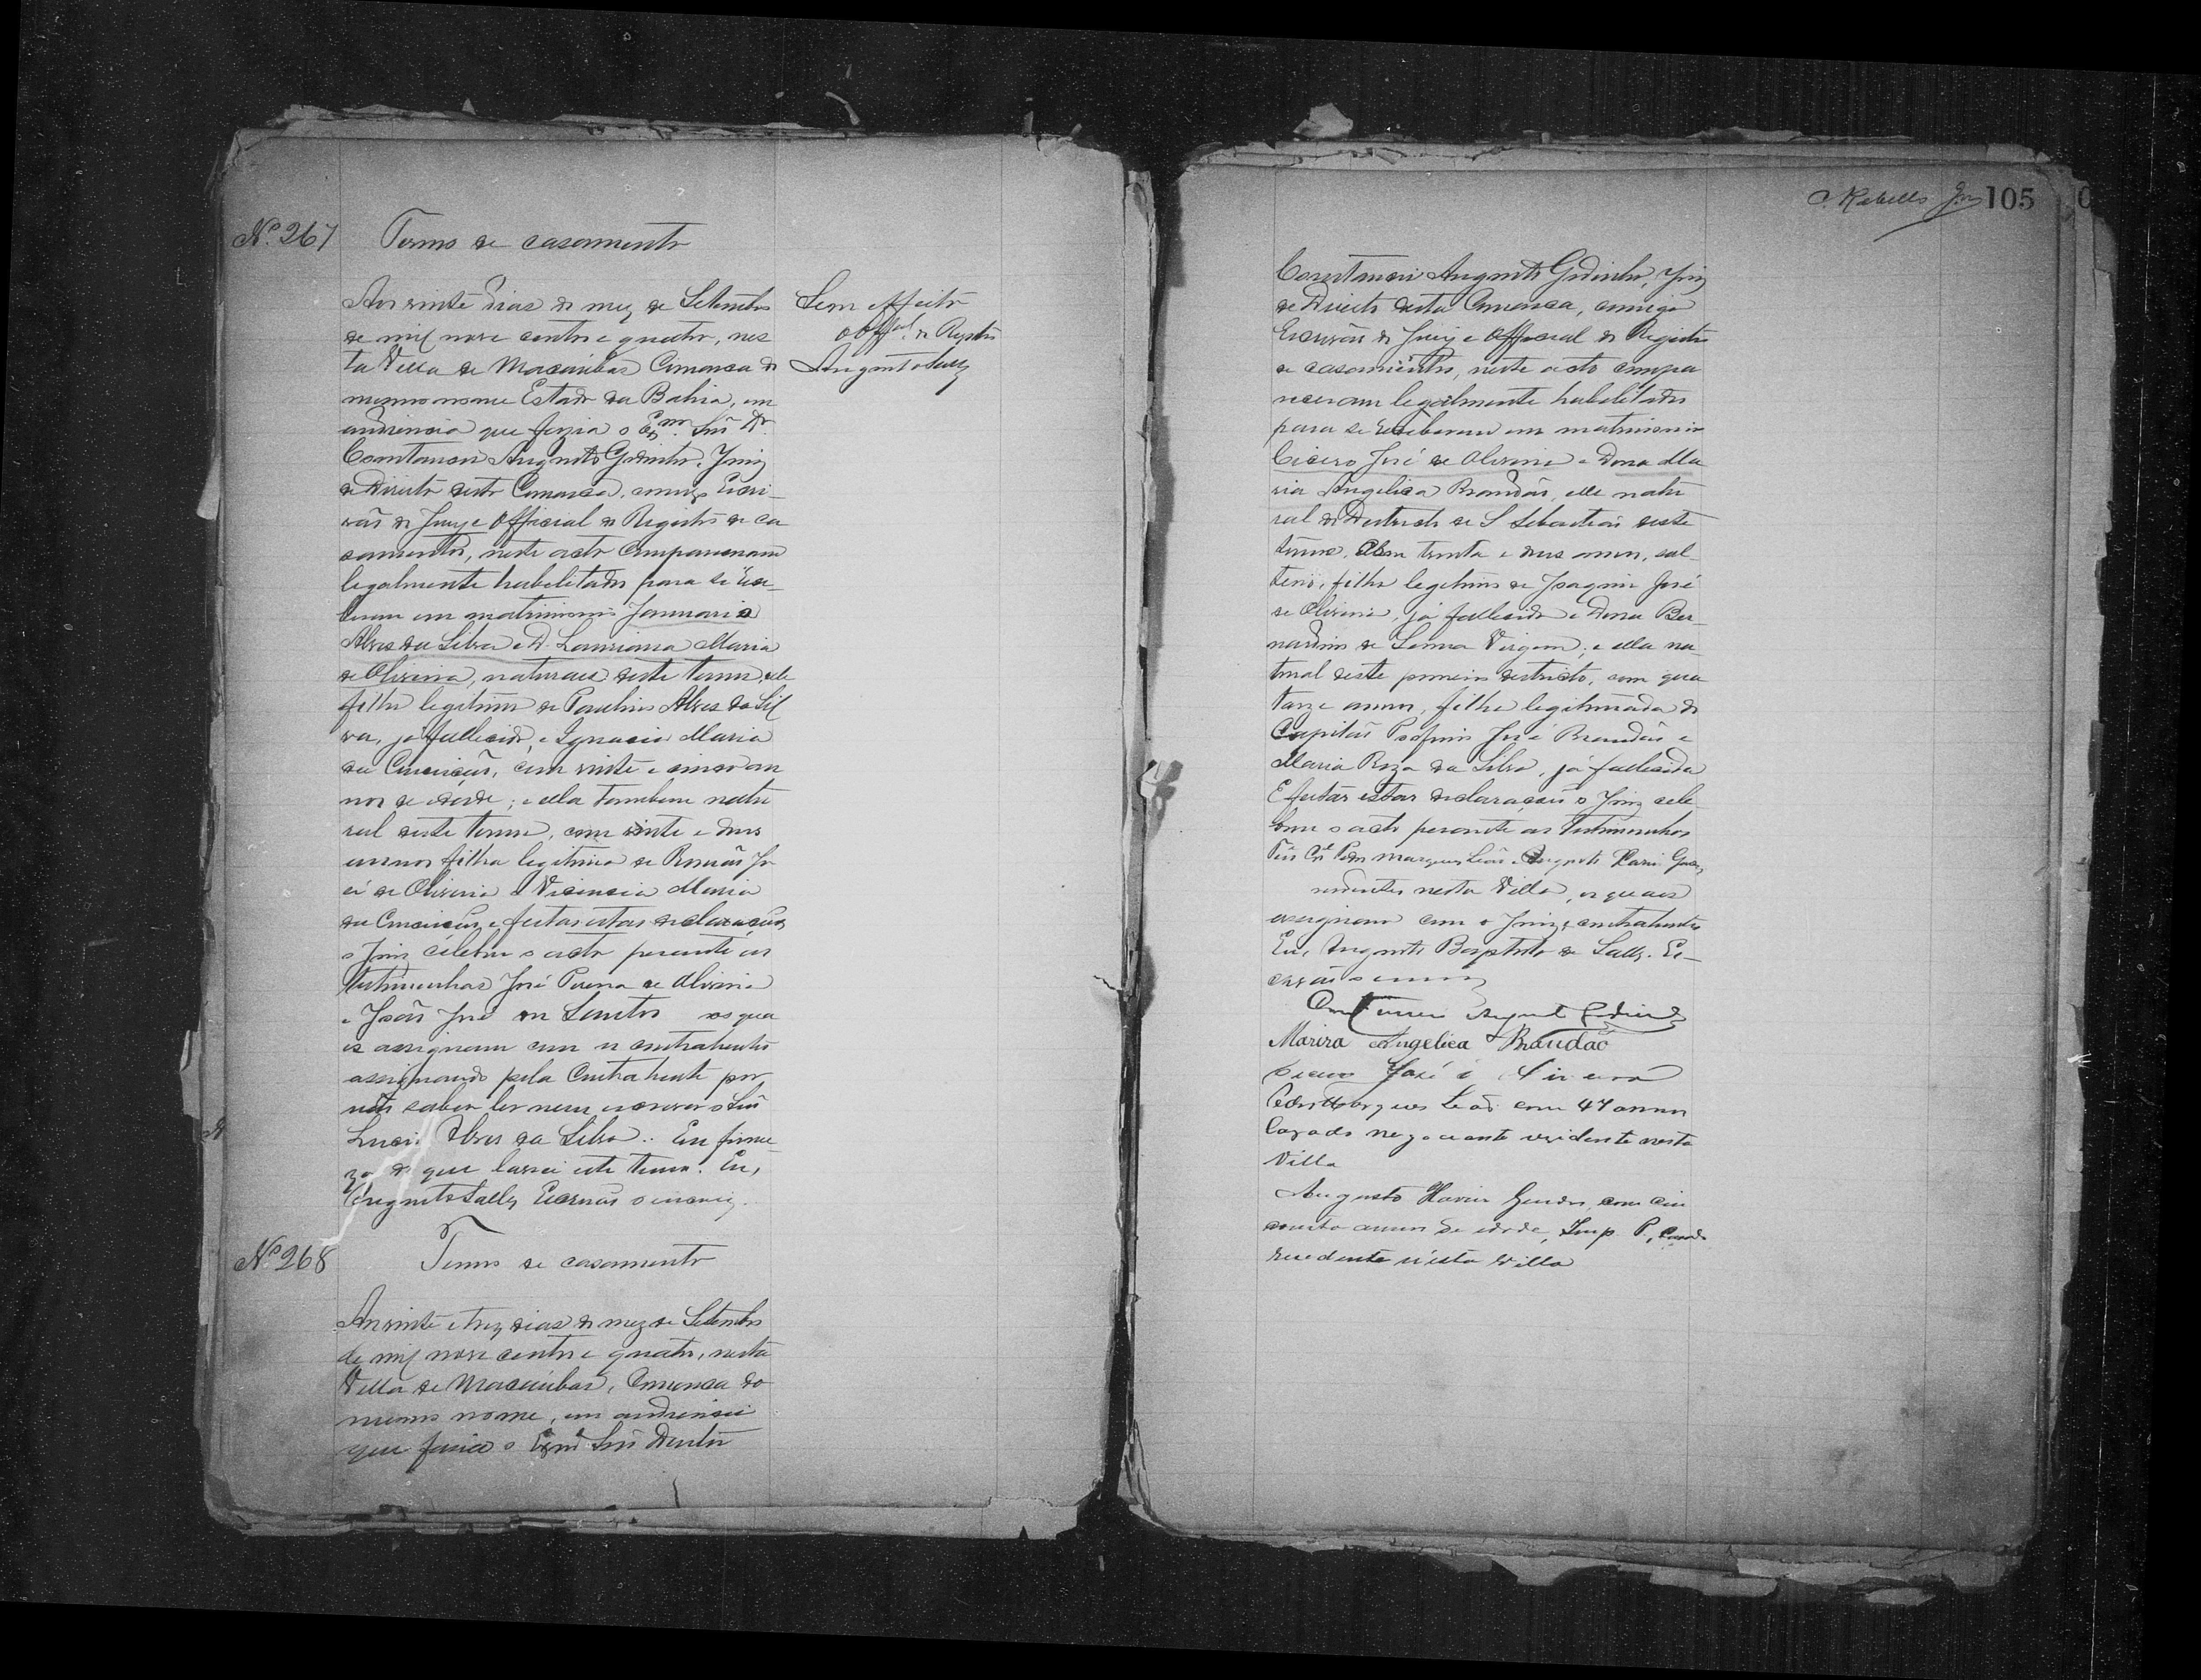 Nº 267 Termo de casamento
Aos vinte dias do mez de Setembro
de mil nove centos e quatro, nes
ta Villa de Macaúbas Comarca do
mesmo nome Estado da Bahia, em
audiencia que fazia o Exmo. Snr. Dr.
Constancio Augusto Godinho, Juiz
de Direito desta Comarca, comigo Escri-
vão do Jury e Official do Registro de ca
samentos, neste acto compareceram
legalmente habelitados para se rece-
berem em matrimonio Januario
Alves da Silva e D. Lauriana Maria
de Oliveira, naturaes deste termo, elle
filho legitimo de Paulino Alves da Sil
va, já fallecido, e Ignacia Maria
da Conceição, com vinte e cinco an
nos de edade; e ella tambem natu
ral deste termo, com vinte e dous
annos filha legitima de Romão Jo
sé de Oliveira e Vicencia Maria
da Conceição, e feitas estas declarações
o Juiz celebrou o acto perante as
testimunhas José Perera de Oliveira
e João José dos Santos os qua
es assignam com os contrahentes
assignando pela Contrahente por
não saber ler nem escrever o Snr
Lucio Alves da Silva.. Em firme
za do que lavrei este termo. Eu,
Augusto Salles Escrivão o escrevi.
Sem effeito
o Offal. do Registro
Augusto Salles
Nº 268 Termo de casamento
Aos vinte e trez dias do mez de Setembro
de mil nove centos e quatro, nesta
Villa de Macaúbas, Comarca do
mesmo nome, em audiencia
que fasia o Exmo Snr Doutor
C. Rebello Jor 105
Constancio Augusto Godinho, Juiz
de Direito desta Comarca, comigo
Escrivão do Jury e Official do Registro
de casamentos, neste acto compa
receram legalmente habelitados
para se receberem em matrimonio
Cicero José de Oliveira e Dona Ma
ria Angelica Brandão, elle natu
ral do Destricto de S Sebastião deste
termo, com trinta e dous annos, sol
teiro, filho legitimo de Joaquim José
de Oliveira, já fallecido e Dona Ber
nardina de Senna Virgem; e ella na
tural deste primeiro destricto, com qua
torze annos, filha legitimada do
Capitão Porfirio José Brandão e
Maria Roza da Silva, já fallecida
E feitas estas declarações o Juiz cele
brou o acto perante as testimunhas
Pedro Marques Leão e Augusto Xavier
residentes nesta Villa, os quaes
assignam com o Juiz e contrahentes
Eu, Augusto Baptista de Salles. Es-
crivão o escrevi
Constancio Augusto Godinho
Marira Angelica Brandão
Cicero José d Oliveira
Pedro Marques Leão com 47 annos
Cazado negociante residente nesta
Villa
Augusto Xavier Guedes, com cin
coenta annos de edade, Emp. P., Casado
residente n'esta villa